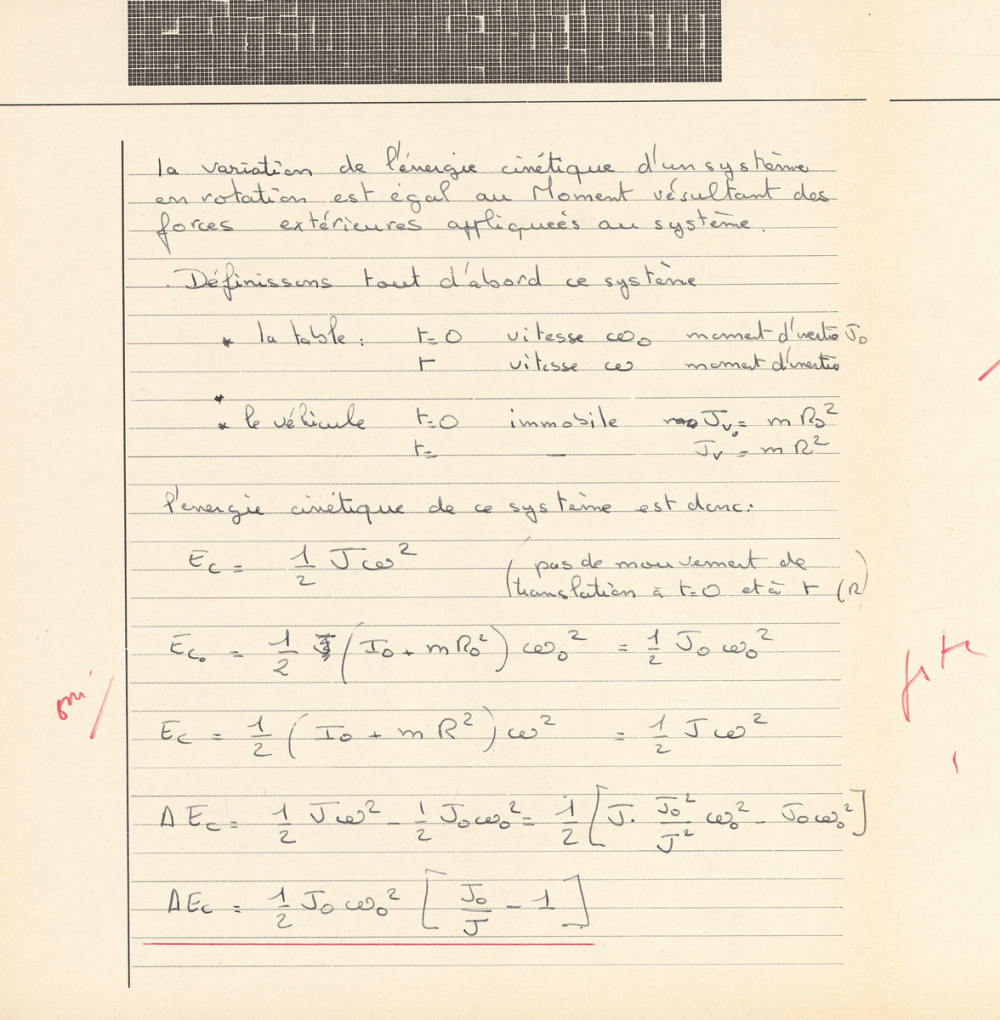 la variation de l'énergie cinétique d'un système
en rotation est égal au Moment résultant des
forces extérieures appliqueés au système.
. Définissons tout d'abord ce système
* la table : t=0 vitesse ω₀ moment d'inertie J₀
t vitesse ω moment d'inertie
* le véhicule t=0 immobile J_v₀ = m R₀²
t= — J_v = m R²
l'energie cinétique de ce système est donc:
E_c = 1/2 J ω² (pas de mouvement de
translation à t=0 et à t (R)
E_c₀ = 1/2 (I₀ + m R₀²) ω₀² = 1/2 J₀ ω₀²
oui
E_c = 1/2 (I₀ + m R²) ω² = 1/2 J ω²
Δ E_c = 1/2 J ω² - 1/2 J₀ ω₀² = 1/2 [J. J₀²/J² ω₀² - J₀ ω₀²]
Δ E_c = 1/2 J₀ ω₀² [J₀/J - 1]